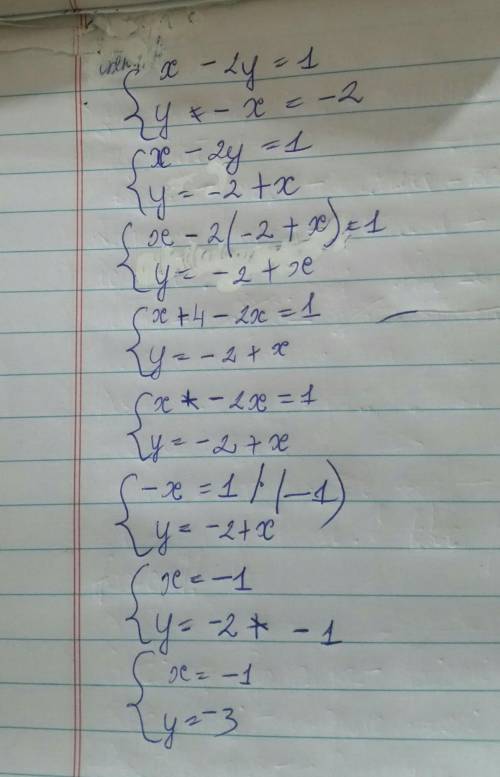 x - 2y = 1
y - x = -2
x - 2y = 1
y = -2 + x
x - 2(-2 + x) = 1
y = -2 + x
x + 4 - 2x = 1
y = -2 + x
x - 2x = 1
y = -2 + x
-x = 1 / (-1)
y = -2 + x
x = -1
y = -2 + -1
x = -1
y = -3